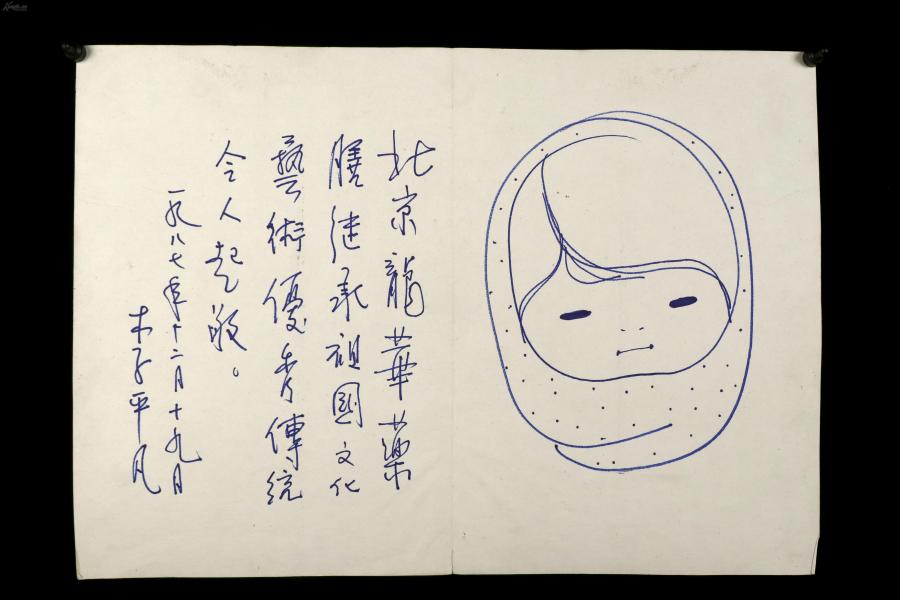 北京龍華藥
膳继承祖國文化
藝術優秀傳統
令人起敬。
一九八七年十二月十九日
木子平凡